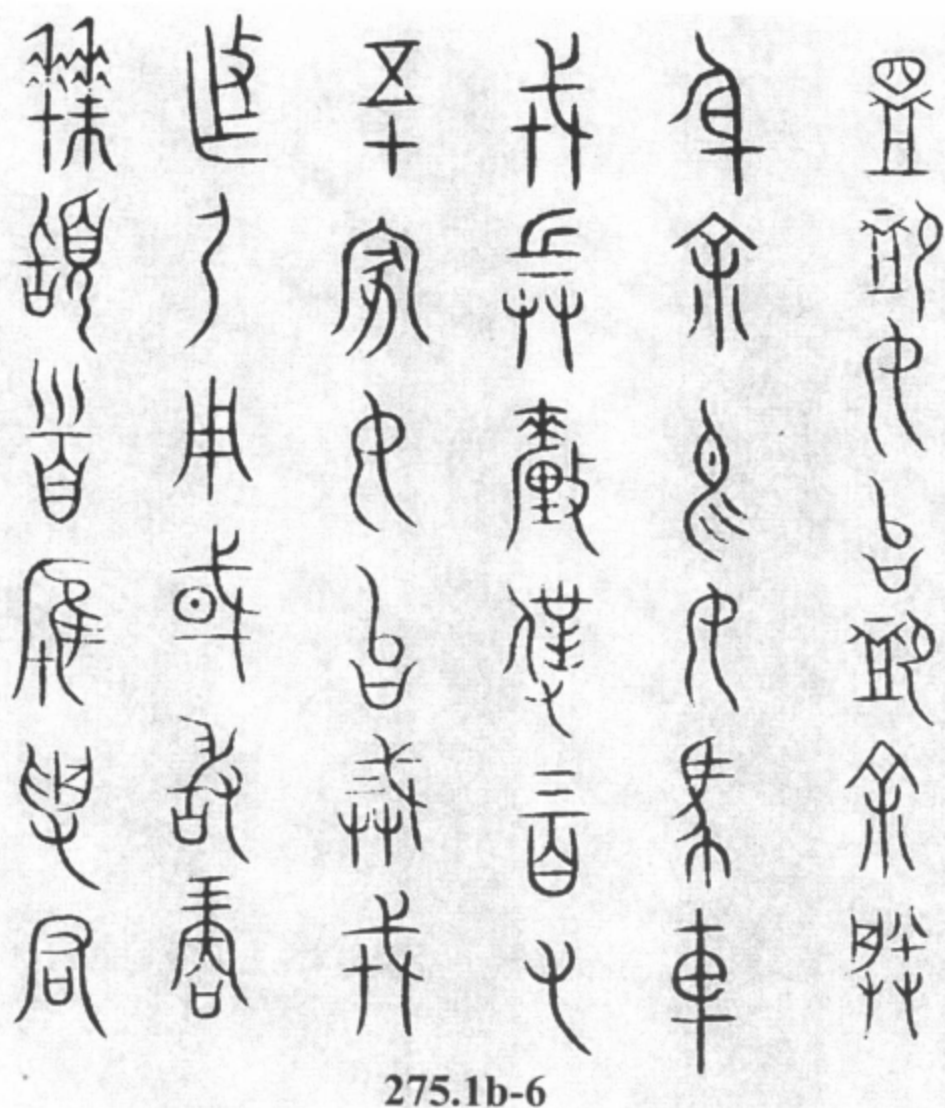 盟卹女台卹余朕
身余易女馬車
戎兵釐僕三百又
五十家女台戒戎
迮尸用或敢再
拜稽首雁受君
275.1b-6